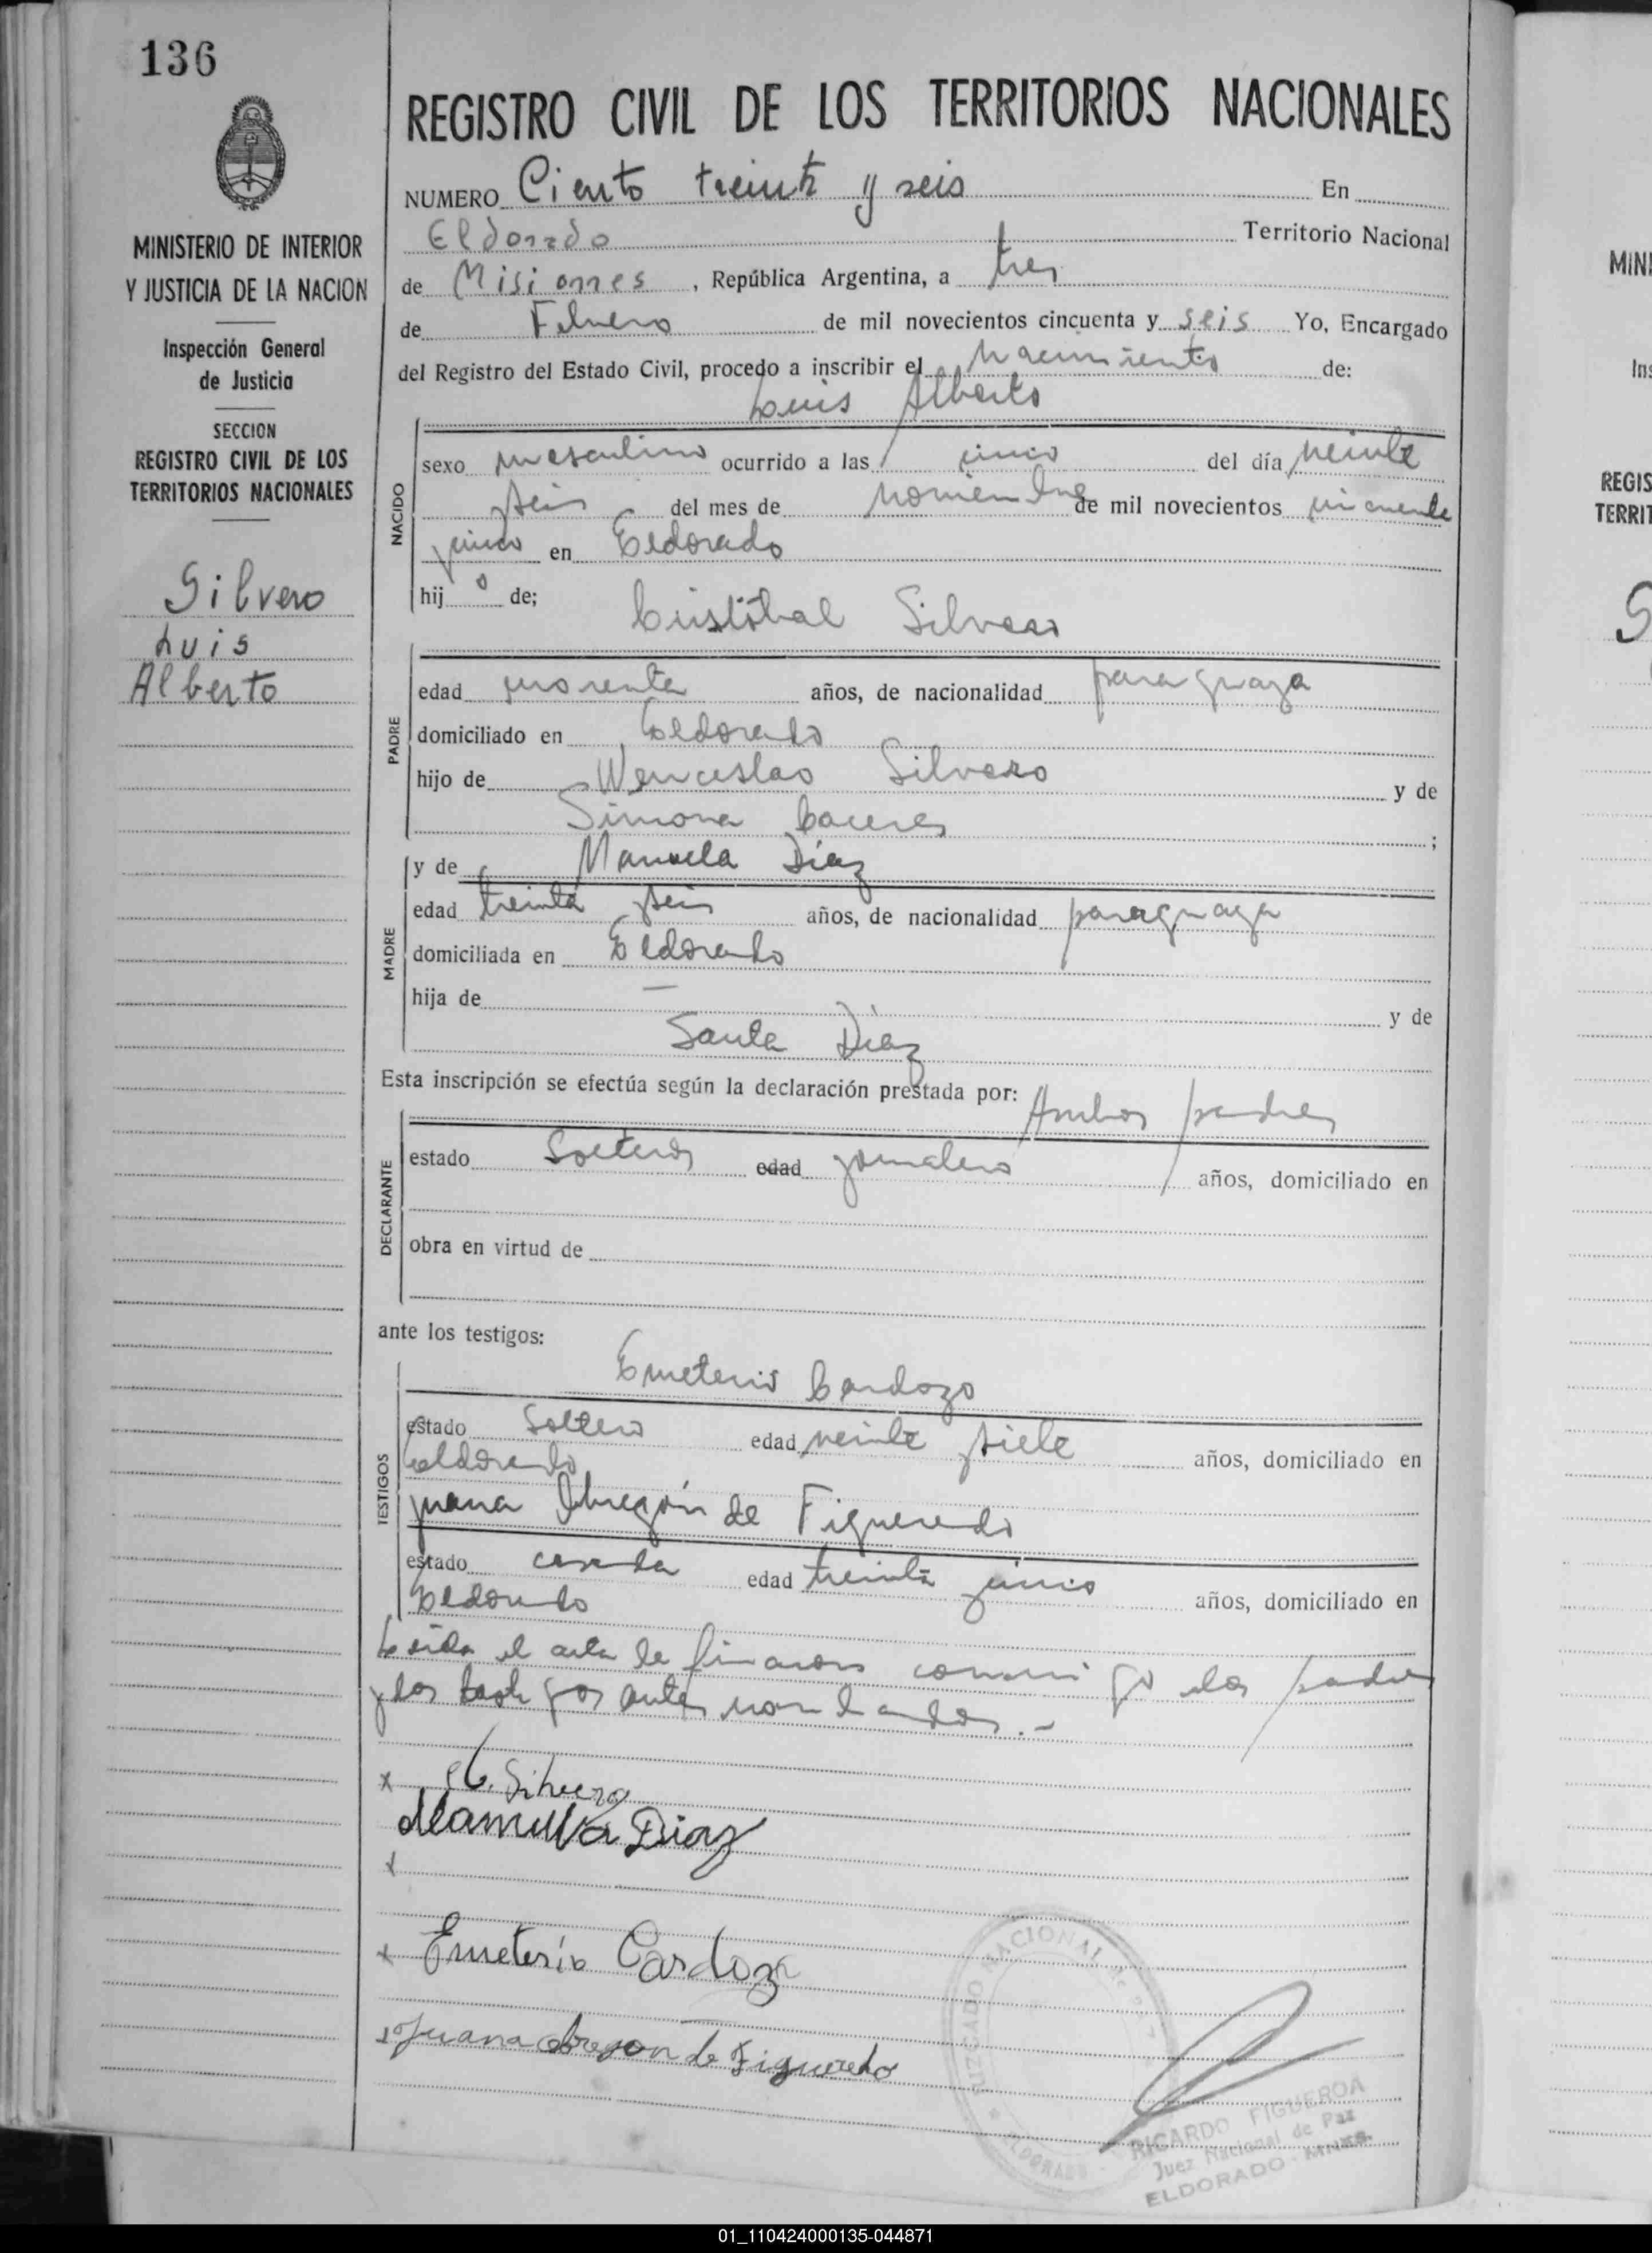 136
MINISTERIO DE INTERIOR
Y JUSTICIA DE LA NACION
Inspección General
de Justicia
SECCION
REGISTRO CIVIL DE LOS
TERRITORIOS NACIONALES
Silvero
Luis
Alberto
REGISTRO CIVIL DE LOS TERRITORIOS NACIONALES
NUMERO Ciento treinta y seis En
Eldorado Territorio Nacional
de Misiones, República Argentina, a tres
de Febrero de mil novecientos cincuenta y seis Yo, Encargado
del Registro del Estado Civil, procedo a inscribir el nacimiento de:
Luis Alberto
NACIDO
sexo masculino ocurrido a las cinco del día veinte
seis del mes de noviembre de mil novecientos cincuenta
cinco en Eldorado
hijo de;
Cristóbal Silvero
PADRE
edad cuarenta años, de nacionalidad paraguaya
domiciliado en Eldorado
hijo de Wenceslao Silvero y de
Simona Caceres ;
MADRE
y de Manuela Diaz
edad treinta seis años, de nacionalidad paraguaya
domiciliada en Eldorado
hija de — y de
Santa Diaz
Esta inscripción se efectúa según la declaración prestada por: Ambos padres
DECLARANTE
estado Solteros edad jornalero años, domiciliado en
obra en virtud de
ante los testigos:
TESTIGOS
Emeterio Cardozo
estado Soltero edad veinte siete años, domiciliado en
Eldorado
Juana Obregón de Figueredo
estado casada edad treinta cinco años, domiciliado en
Eldorado
Leida el acta la firmaron conmigo los padres
y los testigos antes nombrados.-
x C. Silvero
Manuela Diaz
x
x Emeterio Cardozo
x Juana obregon de Figueredo
JUZGADO NACIONAL DE PAZ
ELDORADO
RICARDO FIGUEROA
Juez Nacional de Paz
ELDORADO - MNES.
MINI
Ins
REGIS
TERRIT
S
01_110424000135-044871